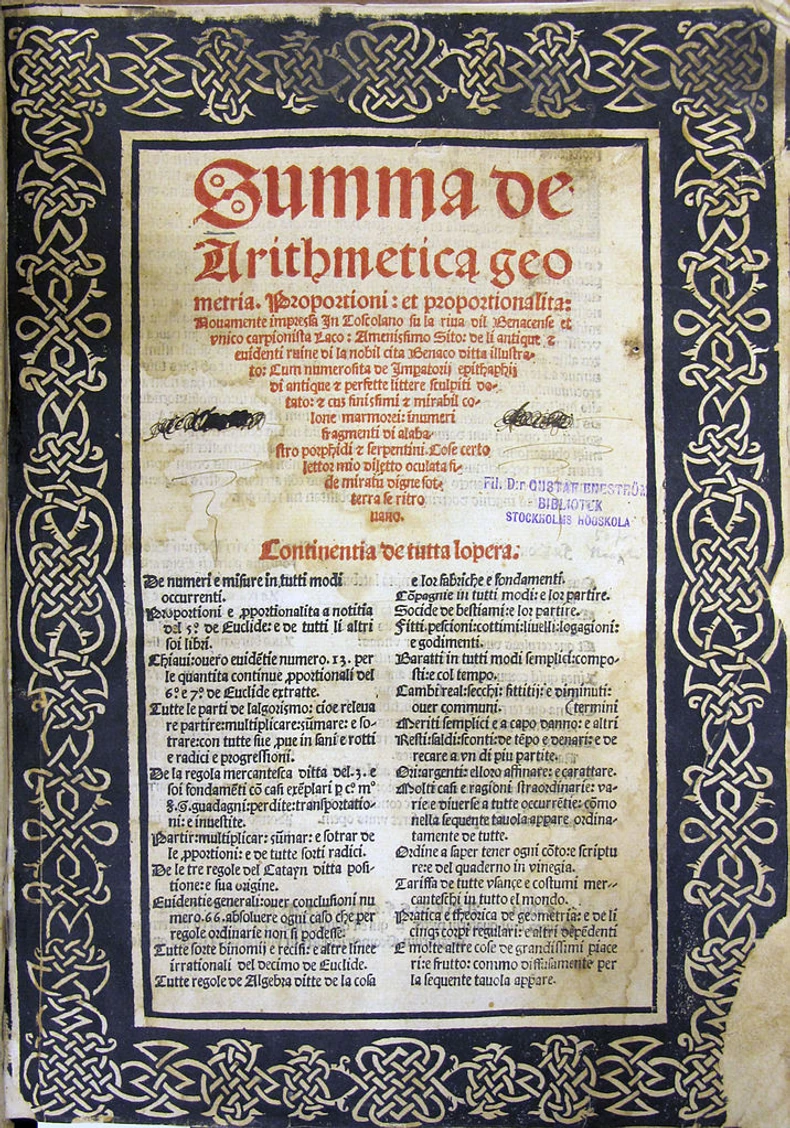 Summa de
Arithmetica geo
metria. Proportioni: et proportionalita:
Nouamente impressa In Toscolano su la riua dil Benacense et
vnico carpionista Laco: Amenissimo Sito: de li antique &
euidenti ruine di la nobil cita Benaco ditta illustra-
to: Cum numerosita de Impatorij epithaphij
di antique & perfette littere sculpiti do-
tato: & cus finissimi & mirabil co-
lone marmorei: inumeri
fragmenti di alaba-
stro porphidi & serpentini. Cose certo
lettor mio diletto oculata fi-
de miratu digne sot-
terra se ritro
uano.
Fil. D:r GUSTAF ENESTRÖM
BIBLIOTEK
STOCKHOLMS HÖGSKOLA
Continentia de tutta lopera.
De numeri e misure in tutti modi
occurrenti.
Proportioni e ꝓportionalita a notitia
del 5º de Euclide: e de tutti li altri
soi libri.
Chiaui: ouero euidẽtie numero. 13. per
le quantita continue ꝓportionali del
6º e 7º de Euclide extratte.
Tutte le parti de lalgorismo: cioe releua
re partire: multiplicare: sũmare: e so-
trare: con tutte sue ꝓue in sani e rotti
e radici e progressioni.
De la regola mercantesca ditta del .3. e
soi fondamẽti cõ casi exẽplari ꝑ cº mº
8. G. guadagni: perdite: transportatio-
ni: e inuestite.
Partir: multiplicar: sũmar: e sotrar de
le ꝓportioni: e de tutte sorti radici.
De le tre regole del Catayn ditta posi-
tione: e sua origine.
Euidentie generali: ouer conclusioni nu
mero. 66. absoluere ogni caso che per
regole ordinarie non si podesse.
Tutte sorte binomij e recisi: e altre linee
irrationali del decimo de Euclide.
Tutte regole de Algebra ditte de la cosa
e lor fabriche e fondamenti.
Cõpagnie in tutti modi: e lor partire.
Socide de bestiami: e lor partire.
Fitti: pescioni: cottimi: liuelli: logagioni:
e godimenti.
Baratti in tutti modi semplici: compo-
sti: e col tempo.
Cambi reali: secchi: fittitij: e diminuti:
ouer communi. (termini
Meriti semplici e a capo danno: e altri
Resti: saldi: sconti: de tẽpo e denari: e de
recare a vn di piu partite.
Ori: argenti: e lloro affinare: e carattare.
Molti casi e ragioni straordinarie: va-
rie e diuerse a tutte occurrẽtie: cõmo
nella sequente tauola appare ordina-
tamente de tutte.
Ordine a saper tener ogni cõto: e scriptu
re: e del quaderno in vinegia.
Tariffa de tutte vsançe e costumi mer-
canteschi in tutto el mondo.
Pratica e theorica de geometria: e de li
cinque corpi regulari: e altri depẽdenti
E molte altre cose de grandissimi piace
ri: e frutto: commo diffusamente per
la sequente tauola appare.